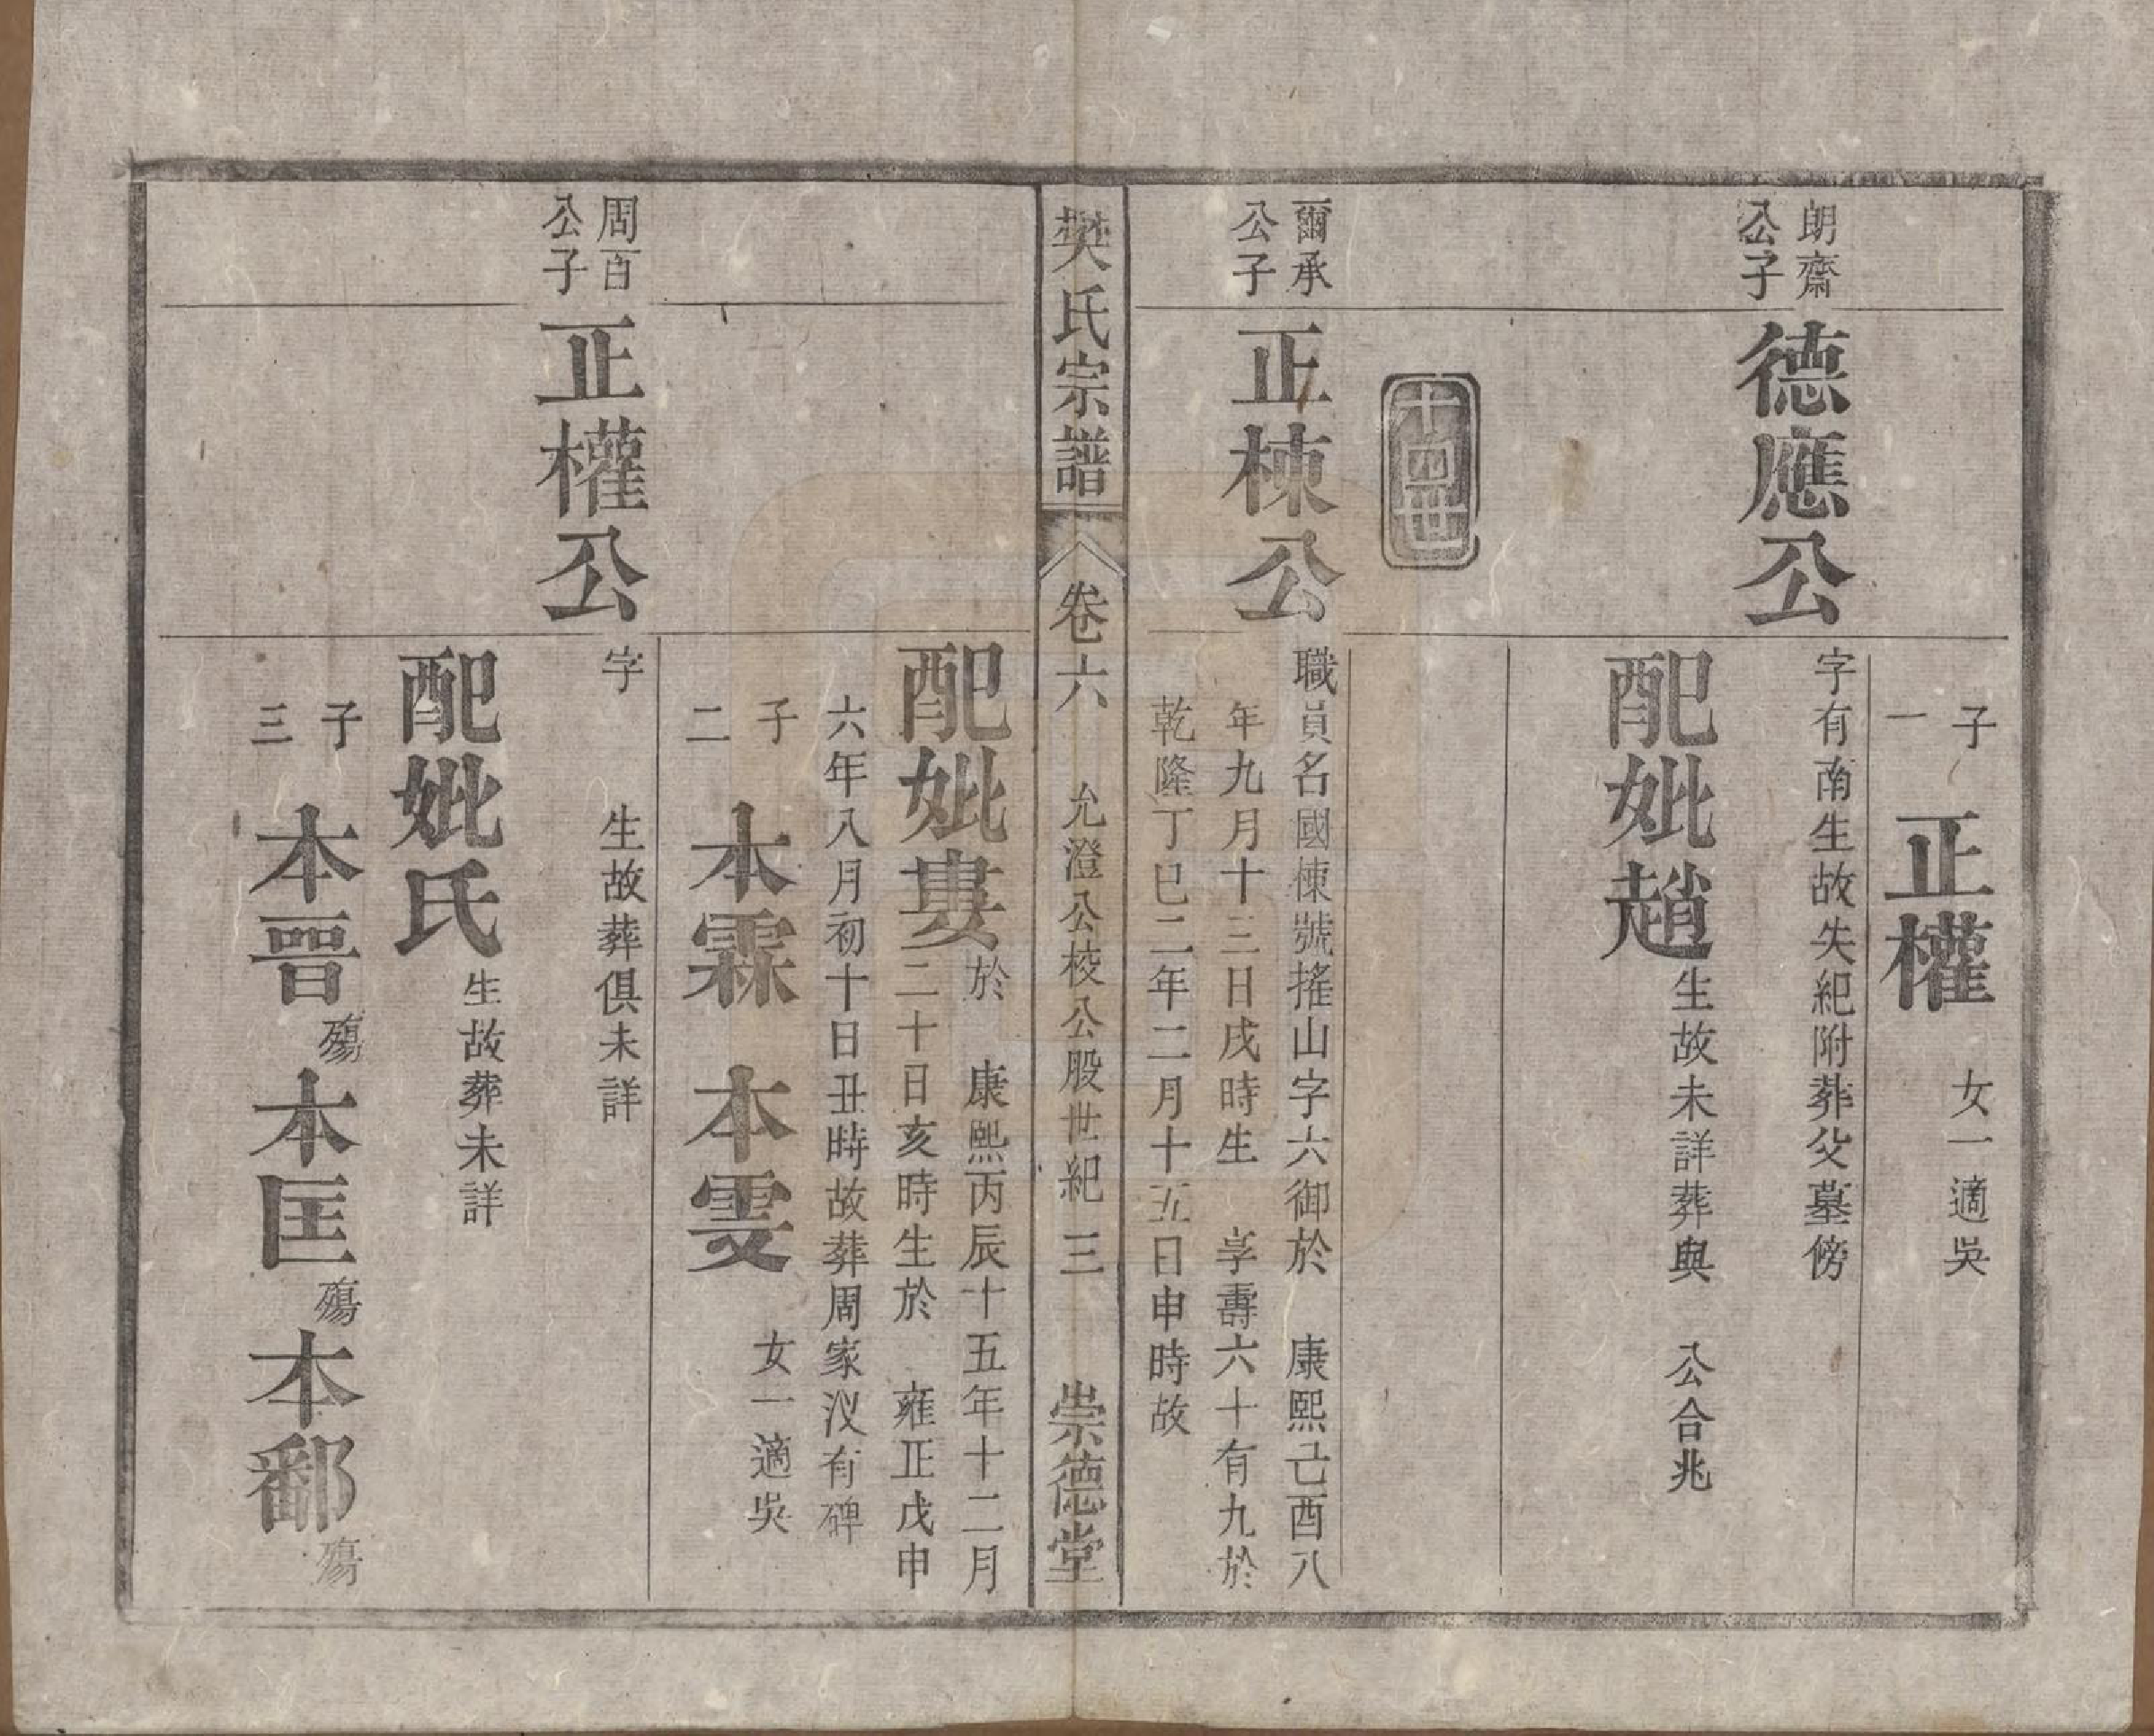 子一
正權
女一適吳
朗齋公子
德應公
字有南生故失紀附葬父墓傍
配妣趙
生故未詳葬與 公合兆
十四世
爾承公子
正棟公
職員名國棟號搖山字六御於 康熙己酉八
年九月十三日戌時生 享壽六十有九於
乾隆丁巳二年二月十五日申時故
樊氏宗譜 卷六 允澄公校公股世紀 三 崇德堂
配妣婁
於 康熙丙辰十五年十二月
二十日亥時生於 雍正戊申
六年八月初十日丑時故葬周家汊有碑
子二
本霖 本雯
女一適吳
周百公子
正權公
字 生故葬俱未詳
配妣氏
生故葬未詳
子三
本晉殤 本匡殤 本鄱殤